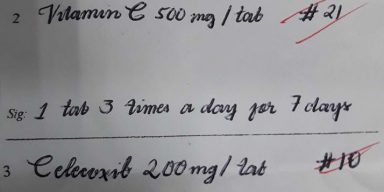 2 Vitamin C 500 mg / tab #21
Sig: 1 tab 3 times a day for 7 days
3 Celecoxib 200 mg / tab #10